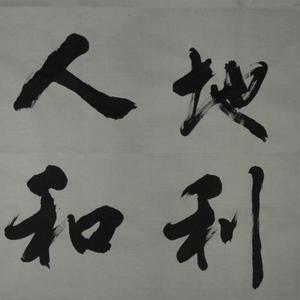 地利
人和